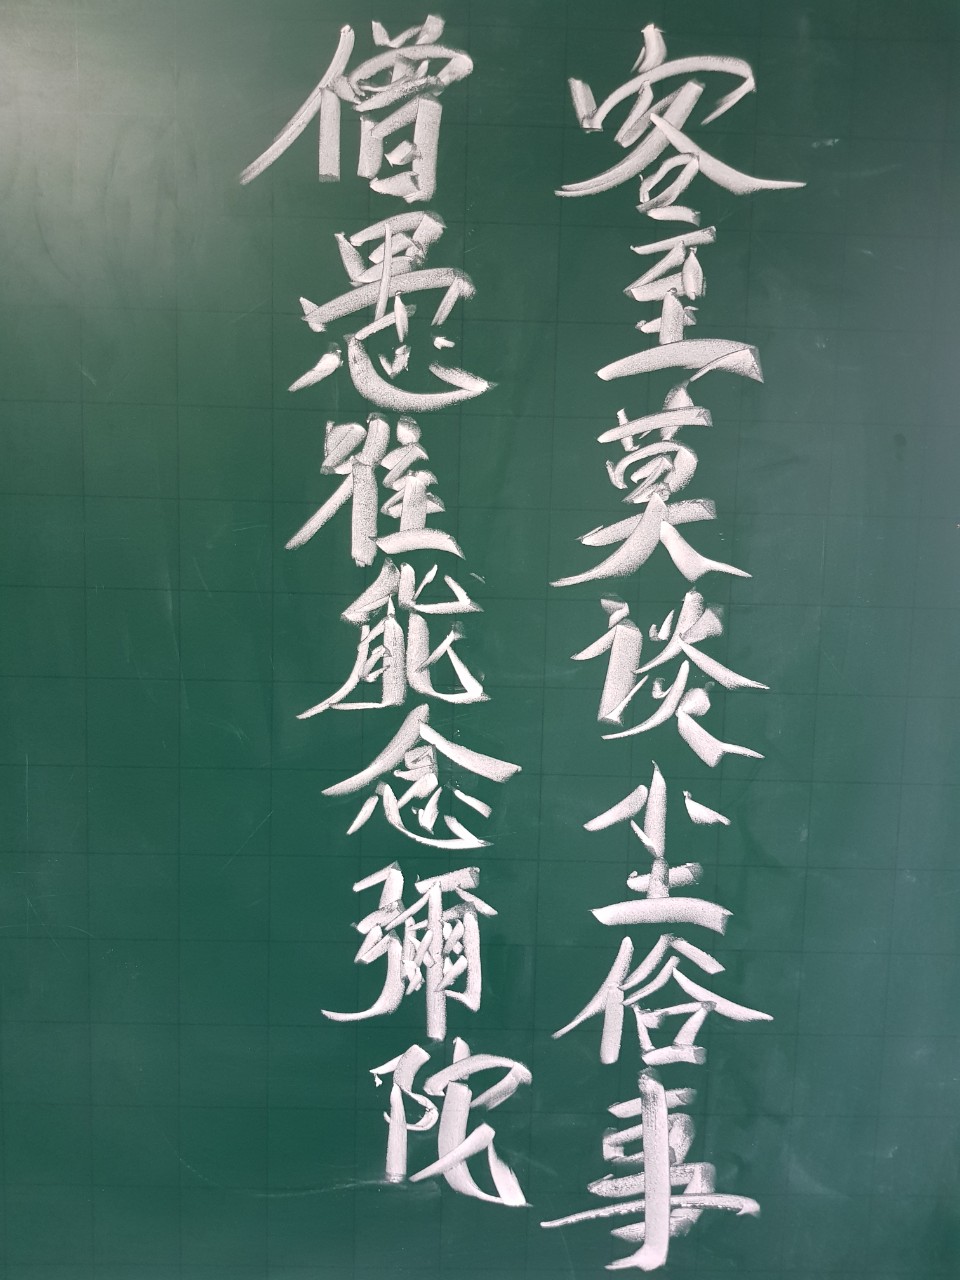 客至莫谈尘俗事
僧愚唯能念彌陀